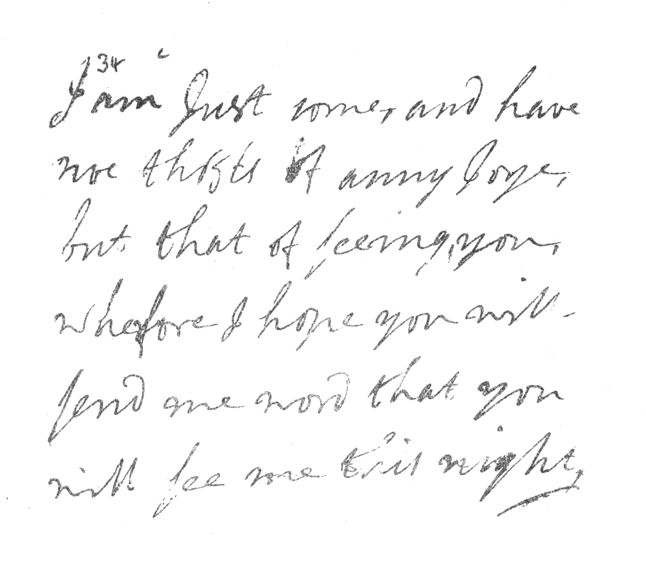 34
I am Just come, and have
noe thots of anny Joye,
but that of seeing you,
wherfore I hope you will
send me word that you
will see me this night,